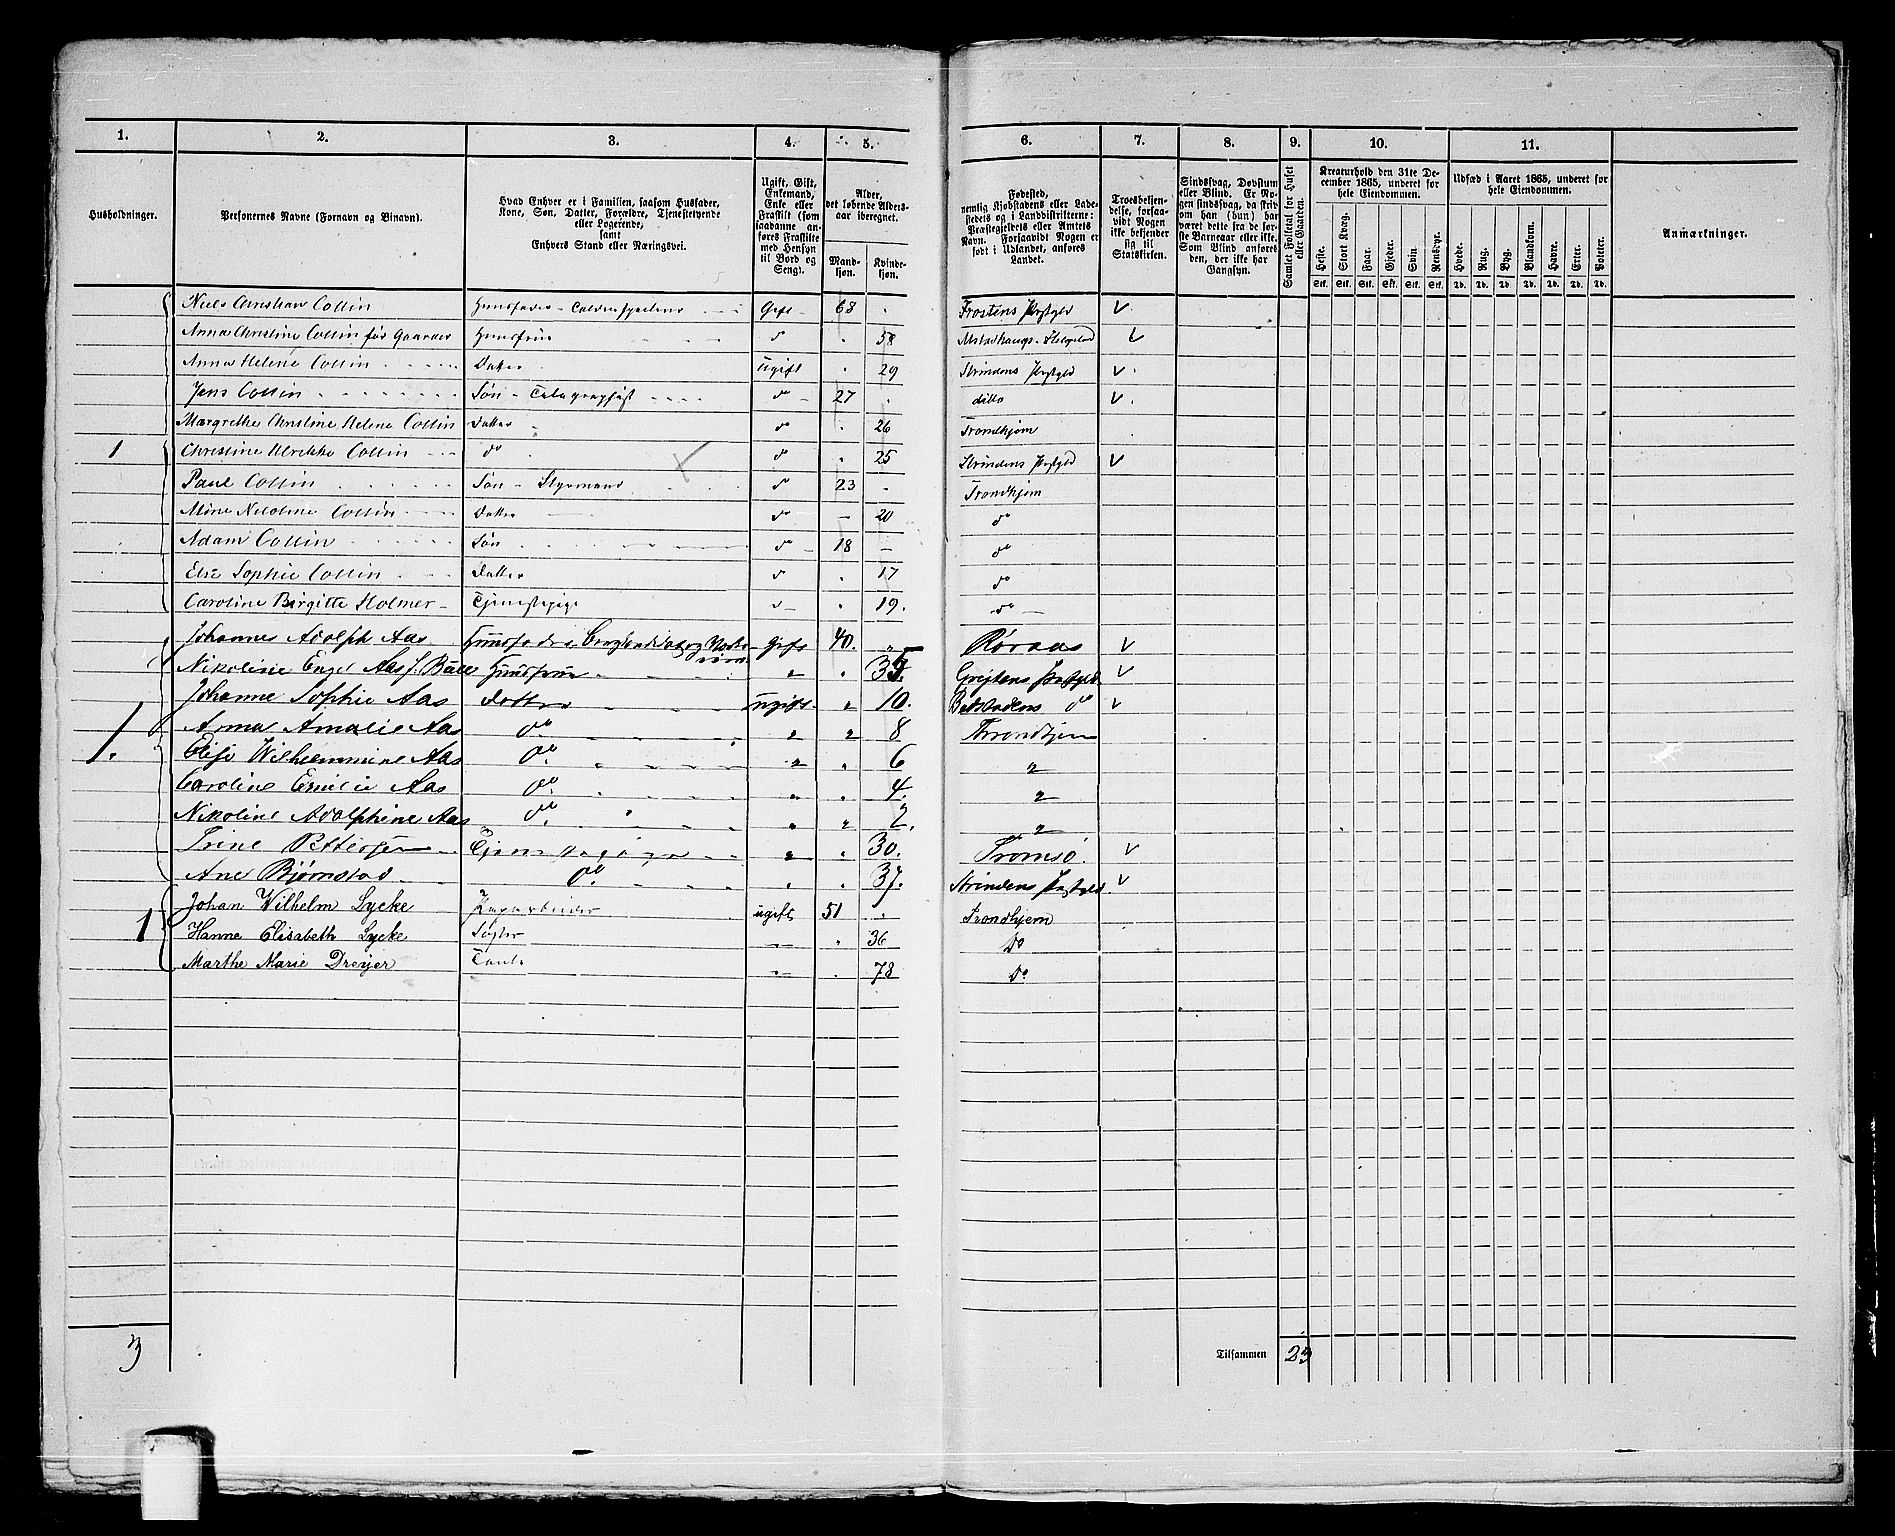 1. 2. 3. 4. 5. 6. 7. 8. 9. 10. 11.
Husholdninger.
Personernes Navne (Fornavn og Binavn).
Hvad Enhver er i Familien, saasom Husfader, Kone, Søn, Datter, Forældre, Tjenestetyende eller Logerende, samt Enhvers Stand eller Næringsvei.
Ugift, Gift, Enkemand, Enke eller Fraskilt (som saadanne anføres Fraskilte med Hensyn til Bord og Seng).
Alder, det løbende Aldersaar iberegnet.
Mandkjøn. Kvindekjøn.
Fødested, nemlig Kjøbstadens eller Ladestedets og i Landdistrikterne: Præstegjeldets eller Amtets Navn. Forsaavidt Nogen er født i Udlandet, anføres Landet.
Troesbekjendelse, forsaavidt Nogen ikke bekjender sig til Statskirken.
Sindssvag, Døvstum eller Blind. Er Nogen sindssvag, da skriv om han (hun) har været dette fra de første Barneaar eller ikke. Som Blind anføres den, der ikke har Gangsyn.
Samlet Folketal for Huset eller Gaarden.
Kreaturhold den 31te December 1865, underet for hele Eiendommen.
Heste. Stort Kvæg. Faar. Gjeder. Svin. Rensdyr.
Stk. Stk. Stk. Stk. Stk. Stk.
Udsæd i Aaret 1865, underet for hele Eiendommen.
Hvede. Rug. Byg. Blandkorn. Havre. Erter. Poteter.
Td. Td. Td. Td. Td. Td. Td.
Anmærkninger.
Niels Christian Collin Huusfader - Gift 68 Frostens Prstgld
Anna Christine Collin før Gaarder Huusfrue do 58 Alstadhaugs - Helgeland
Anna Helene Collin Datter ugift 29 Strindens Prstgld
Jens Collin Søn - Telegrafist do 27 ditto
Margrethe Christine Helene Collin Datter do 26 Trondhjem
1 Christine Ulrikke Collin do do 25 Strindens Prstgld
Paul Collin Søn - Styrmand do 23 Trondhjem
Nicoline Collin Datter do 20 do
Adam Collin Søn do 18 do
Else Sophie Collin Datter do 17 do
Caroline Birgitte Holmer Tjenestepige do 19. do
Johannes Adolph Aas Huusfader gift 40. Røraas
Nikoline Engel Aas f. Huusfrue 35. Prstgld
Johanne Sophie Aas Datter ugift 10. Betstadens do
Anna Amalie Aas do 8 Throndhjem
1. Wilhelmmine Aas do. 6
Caroline Emilie Aas do. 4.
Nikoline Adolphine Aas do. 2.
Trine Pettersen Tjenestepige 30. Tromsø.
Ane Bjørnstad do. 37. Strindens Prstgld
Johan Wilhelm Lycke ugift 51 Trondhjem
1 Hanne Elisabeth Lycke Søster 36 do
Marthe Marie Dreyer Tante 78 do
3 Tilsammen 23